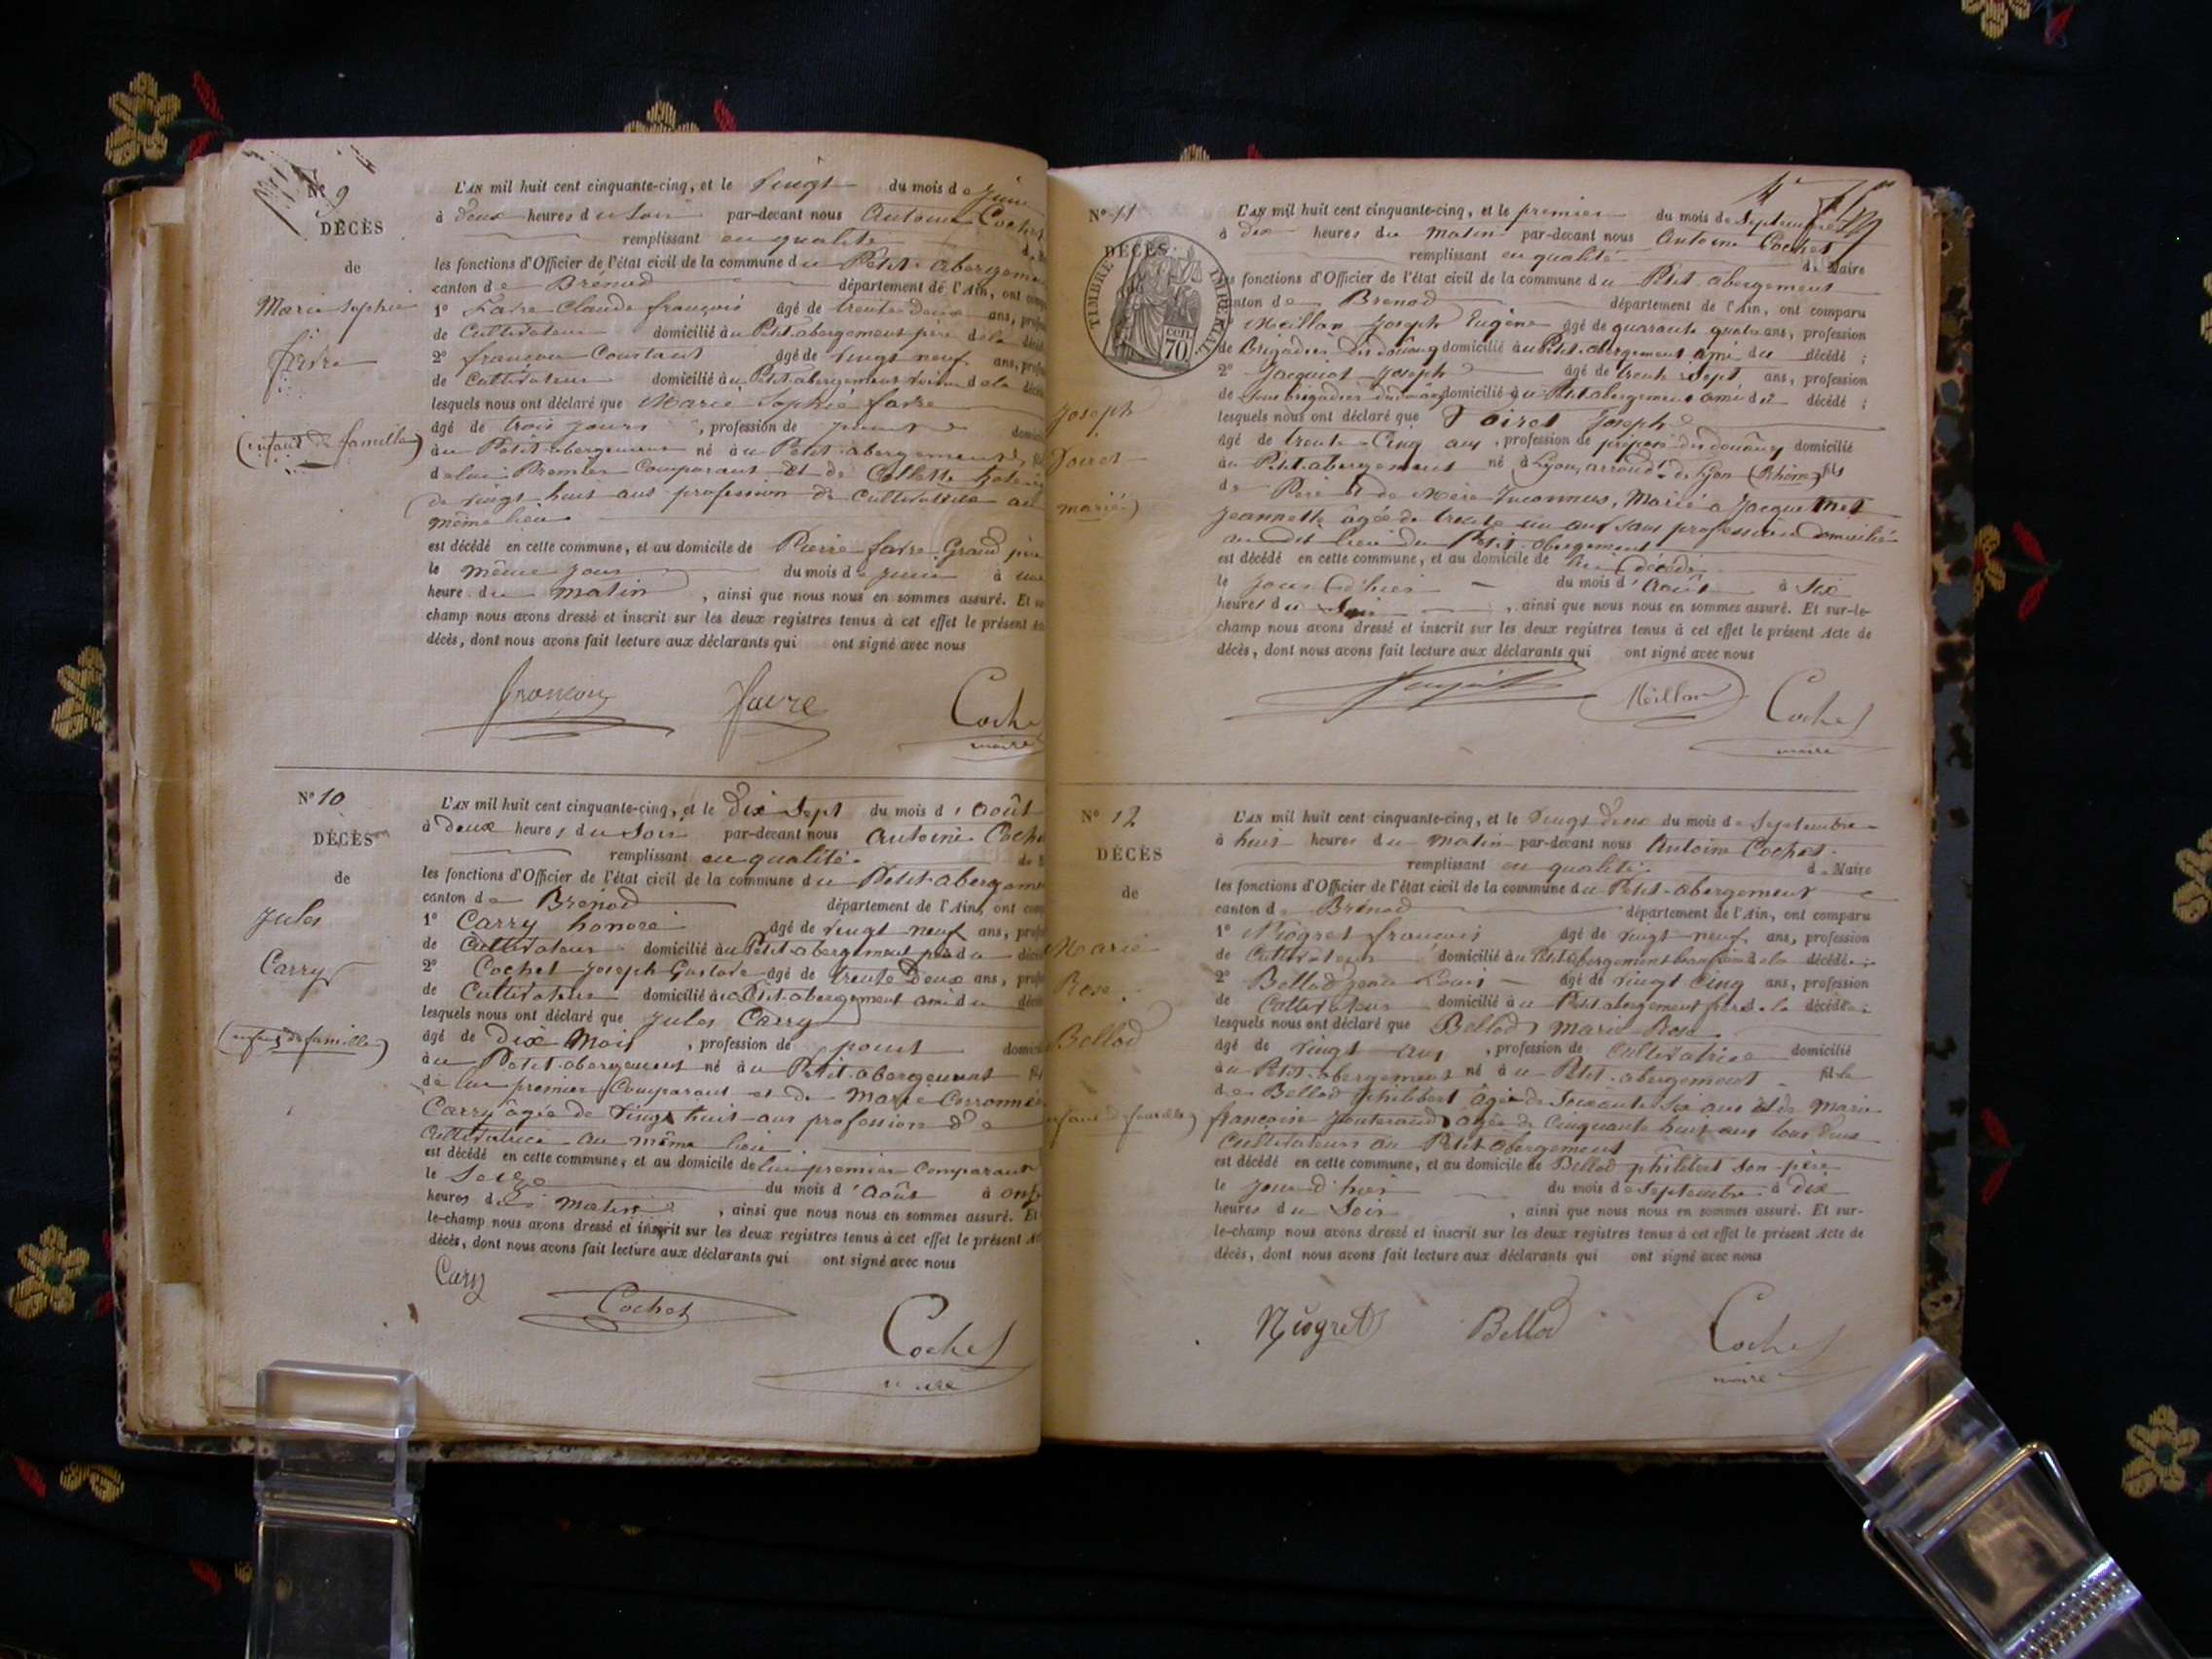 Nº 9
DÉCÈS
de
Marie Sophie
favre
(enfant de famille)
L'AN mil huit cent cinquante-cinq, et le vingt du mois de Juin
à deux heures du Soir par-devant nous Antoine Cochet
remplissant en qualité
les fonctions d'Officier de l'état civil de la commune du Petit-abergement
canton de Brénod département de l'Ain, ont
1º favre Claude françois âgé de trente deux ans,
de Cultivateur domicilié au Petit-abergement père de la
2º françon Constant âgé de vingt neuf ans,
de Cultivateur domicilié au Petit-abergement voisin de la
lesquels nous ont déclaré que Marie Sophie favre
âgé de trois jours, profession de
au Petit-abergement né au Petit-abergement
de lui Premier Comparant et de Collette
de vingt huit ans profession de Cultivatrice au
même lieu
est décédé en cette commune, et au domicile de Pierre favre Grand père
le même jour du mois de Juin à une
heure du matin, ainsi que nous nous en sommes assuré. Et
champ nous avons dressé et inscrit sur les deux registres tenus à cet effet le présent
décès, dont nous avons fait lecture aux déclarants qui ont signé avec nous
françon favre Cochet
maire
Nº 10
DÉCÈS
de
Jules
Carry
(enfant de famille)
L'AN mil huit cent cinquante-cinq, et le dix Sept du mois d'Août
à deux heures du Soir par-devant nous Antoine Cochet
remplissant en qualité
les fonctions d'Officier de l'état civil de la commune du Petit-abergement
canton de Brénod département de l'Ain, ont
1º Carry honoré âgé de vingt neuf ans,
de Cultivateur domicilié au Petit-abergement père du
2º Cochet Joseph Gustave âgé de trente Deux ans,
de Cultivateur domicilié au Petit-abergement ami du
lesquels nous ont déclaré que Jules Carry
âgé de Dix Mois, profession de point
au Petit-abergement né au Petit-abergement
de lui premier Comparant et de Marie
Carry âgée de vingt huit ans profession de
Cultivatrice au même lieu
est décédé en cette commune, et au domicile de lui premier Comparant
le Seize du mois d'Août à onze
heures du matin, ainsi que nous nous en sommes assuré. Et
le-champ nous avons dressé et inscrit sur les deux registres tenus à cet effet le présent
décès, dont nous avons fait lecture aux déclarants qui ont signé avec nous
Cary
Cochet
Cochet
maire
Nº 11
DÉCÈS
TIMBRE IMPÉRIAL
cen 70
Joseph
Poiret
marié)
L'AN mil huit cent cinquante-cinq, et le premier du mois de Septembre
à dix heures du matin par-devant nous Antoine Cochet
remplissant en qualité de Maire
les fonctions d'Officier de l'état civil de la commune du Petit-abergement
canton de Brenod département de l'Ain, ont comparu
Meillan Joseph Eugène âgé de quarante quatre ans, profession
de Brigadier des douanes domicilié au Petit-abergement ami du décédé ;
2º Jacquiot Joseph âgé de trente Sept ans, profession
de Sous brigadier des douanes domicilié au Petit-abergement ami du décédé ;
lesquels nous ont déclaré que Poiret Joseph
âgé de trente-Cinq ans, profession de préposé des douanes domicilié
au Petit-abergement né à Lyon, arrond.t de Lyon (Rhône) fils
de Père et de Mère Inconnus, Marié à Jacquemet
Jeannette âgée de trente un ans sans profession domiciliée
au dit lieu du Petit-abergement
est décédé en cette commune, et au domicile de lui décédé
le jour d'hier du mois d'Août à Six
heures du Soir, ainsi que nous nous en sommes assuré. Et sur-le-
champ nous avons dressé et inscrit sur les deux registres tenus à cet effet le présent Acte de
décès, dont nous avons fait lecture aux déclarants qui ont signé avec nous
Meillan Cochet
maire
Nº 12
DÉCÈS
de
Marie
Rose
Bellod
enfant de famille)
L'AN mil huit cent cinquante-cinq, et le vingt deux du mois de Septembre
à huit heures du matin par-devant nous Antoine Cochet
remplissant en qualité de Maire
les fonctions d'Officier de l'état civil de la commune du Petit-abergement
canton de Brénod département de l'Ain, ont comparu
1º Niogret françois âgé de vingt neuf ans, profession
de Cultivateur domicilié au Petit-abergement beau frère de la décédée ;
2º Bellod Jean Louis âgé de vingt Cinq ans, profession
de Cultivateur domicilié au Petit-abergement frère de la décédée ;
lesquels nous ont déclaré que Bellod Marie Rose
âgé de vingt ans, profession de Cultivatrice domicilié
au Petit-abergement né au Petit-abergement fille
de Bellod philibert âgé de Soixante Six ans et de Marie
françoise âgée de Cinquante huit ans tous deux
Cultivateurs au Petit-abergement
est décédé en cette commune, et au domicile de Bellod philibert Son père
le jour d'hier du mois de Septembre à dix
heures du Soir, ainsi que nous nous en sommes assuré. Et sur-
le-champ nous avons dressé et inscrit sur les deux registres tenus à cet effet le présent Acte de
décès, dont nous avons fait lecture aux déclarants qui ont signé avec nous
Niogret Bellod Cochet
maire